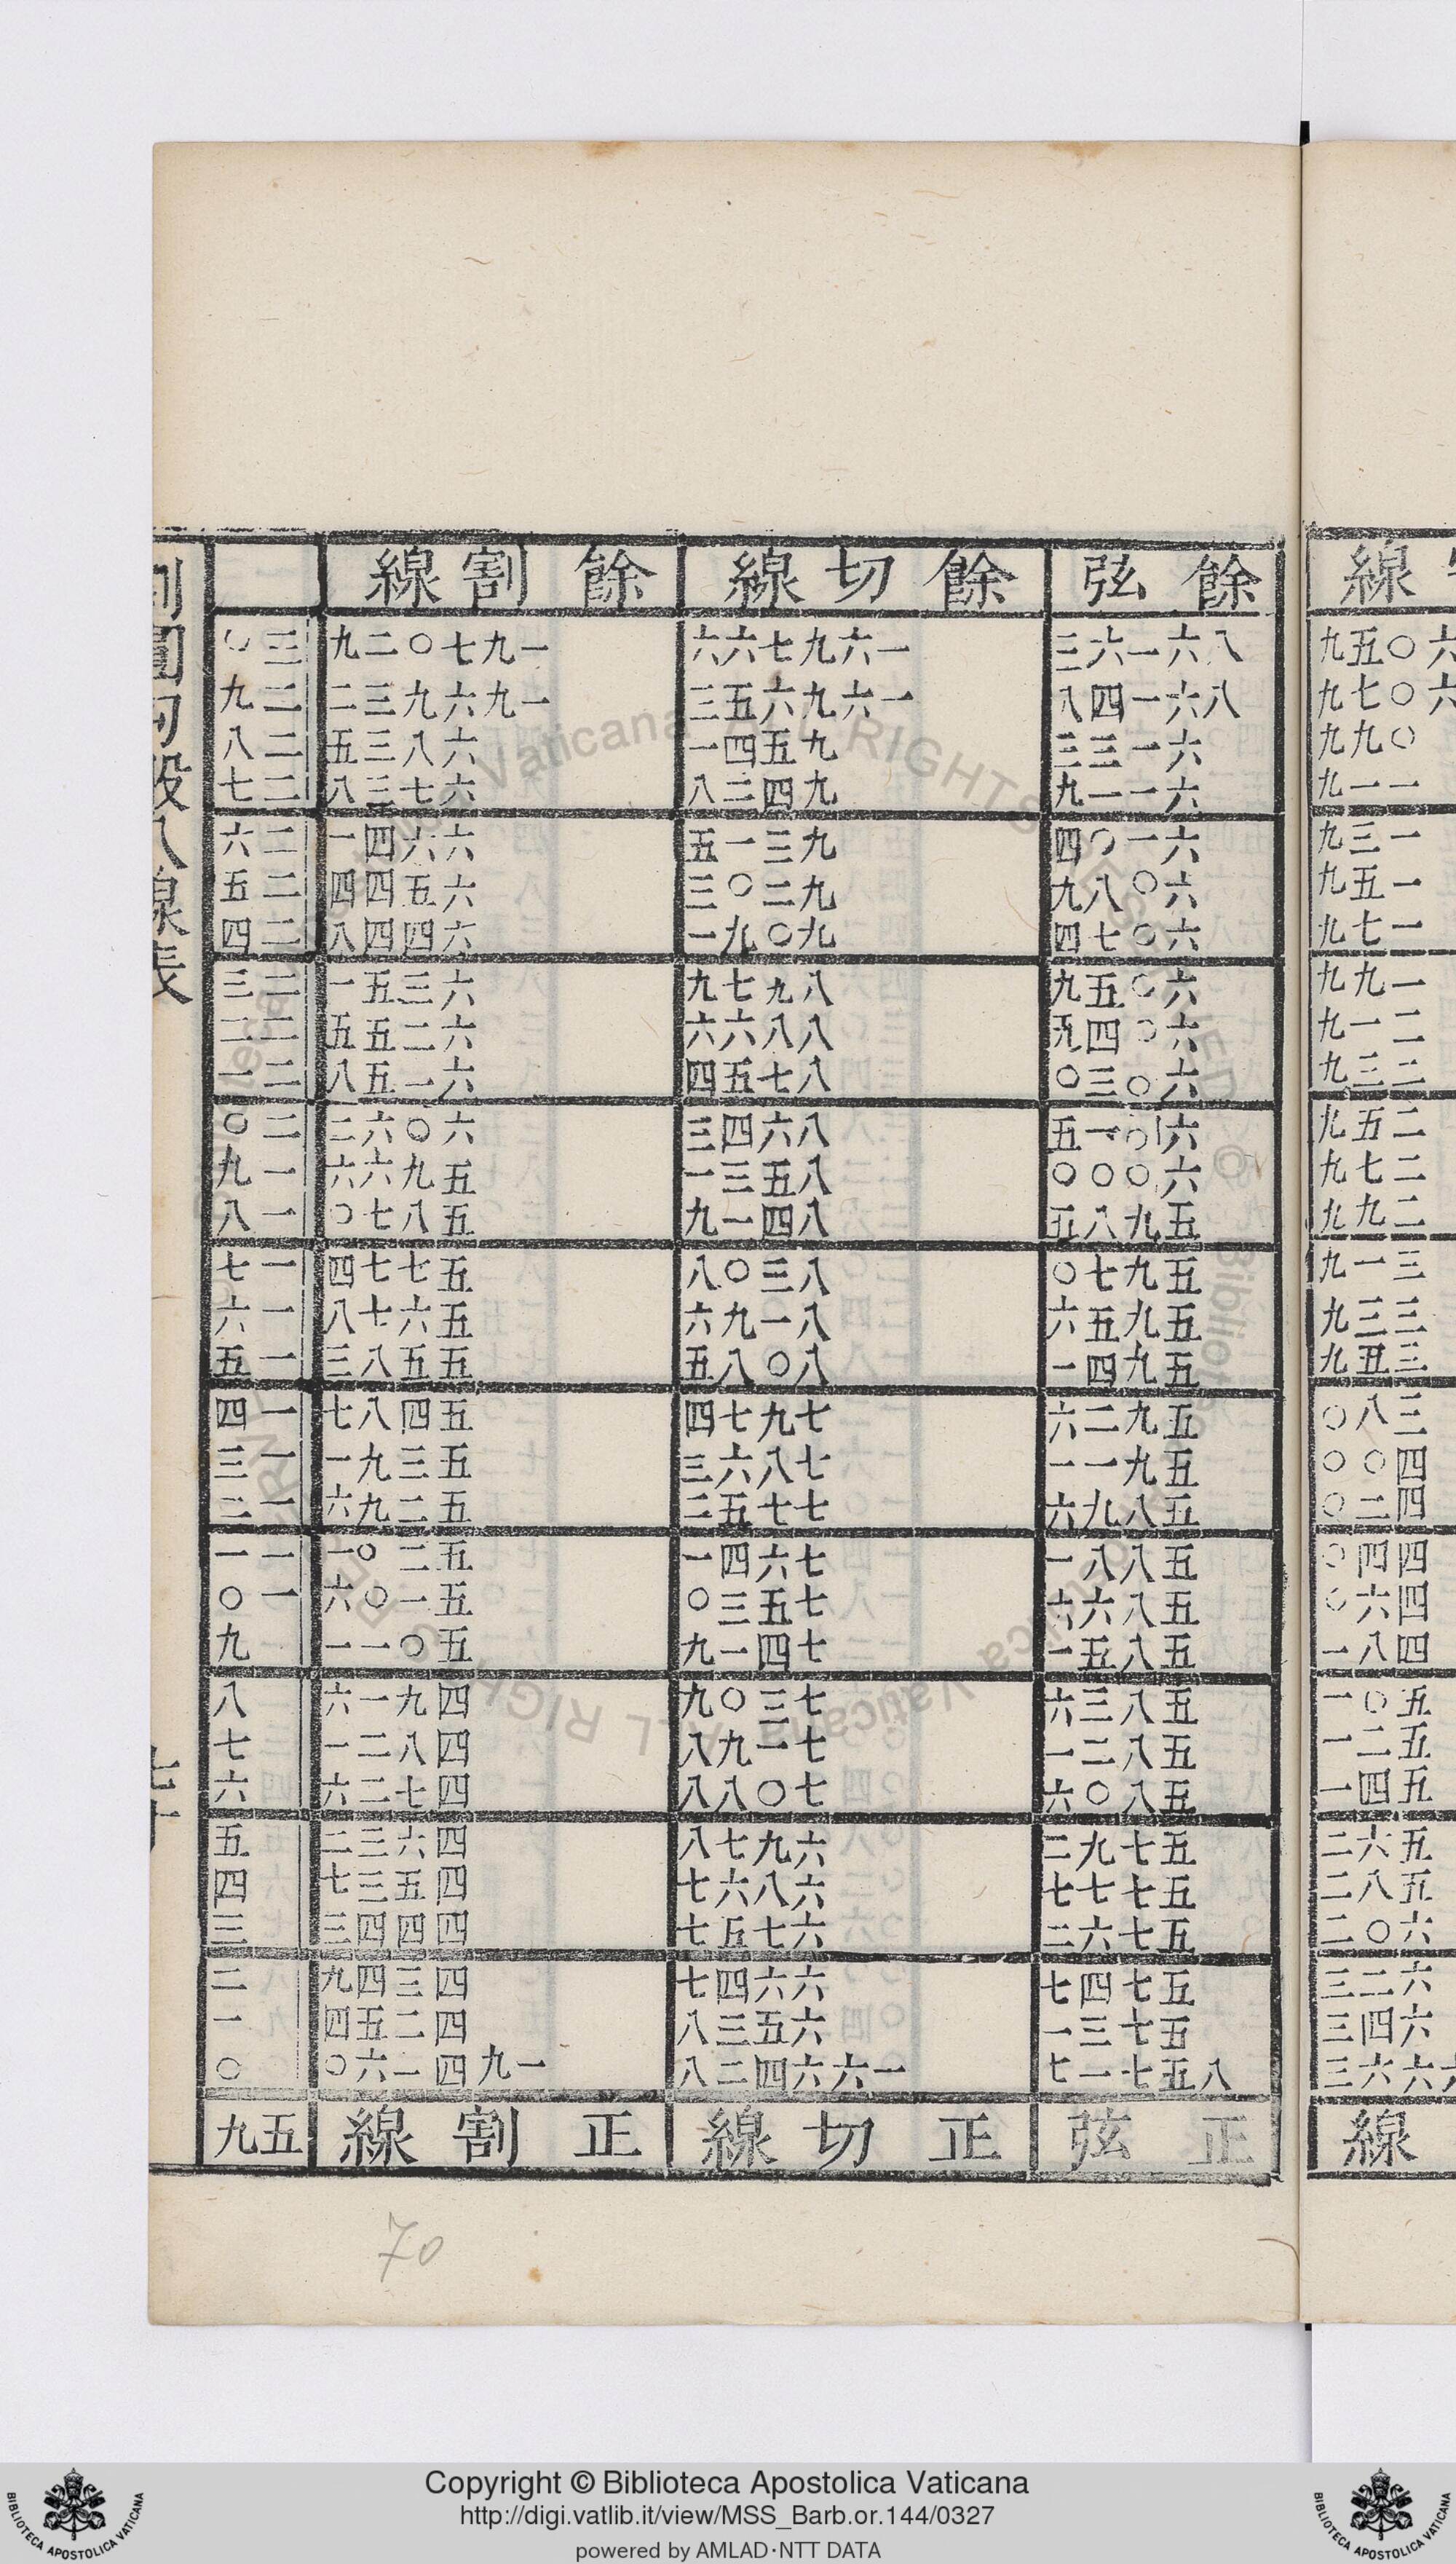 線 餘弦 餘切線 餘割線
六〇五九 八六一六三 一六九七六六 一九七〇二九 三〇
六〇七九 八六一四八 一六九六五三 一九六九三二 二九
〇九九 六一三三 九五四一 六八三五 二八
一一九 六一一九 九四二八 六七三八 二七
一三九 六一〇四 九三一五 六六四一 二六
一五九 六〇八九 九二〇三 六五四四 二五
一七九 六〇七四 九〇九一 六四四八 二四
一九九 六〇五九 八九七九 六三五一 二三
二一九 六〇四五 八八六六 六二五五 二二
二三九 六〇三〇 八七五四 六一五八 二一
二五九 六〇一五 八六四三 六〇六二 二〇
二七九 六〇〇〇 八五三一 五九六六 一九
二九九 五九八五 八四一九 五八七〇 一八
三一九 五九七〇 八三〇八 五七七四 一七
三三九 五九五六 八一九六 五六七八 一六
三五九 五九四一 八〇八五 五五八三 一五
三八〇 五九二六 七九七四 五四八七 一四
四〇〇 五九一一 七八六三 五三九一 一三
四二〇 五八九六 七七五二 五二九六 一二
四四〇 五八八一 七六四一 五二〇一 一一
四六〇 五八六六 七五三〇 五一〇六 一〇
四八一 五八五一 七四一九 五〇一一 九
五〇一 五八三六 七三〇九 四九一六 八
五二一 五八二一 七一九八 四八二一 七
五四一 五八〇六 七〇八八 四七二六 六
五六二 五七九二 六九七八 四六三二 五
五八二 五七七七 六八六七 四五三七 四
六〇二 五七六二 六七五七 四四四三 三
六二三 五七四七 六六四七 四三四九 二
六四三 五七三一 六五三八 四二五四 一
六六三 八五七一七 一六六四二八 一九四一六〇 〇
線 正弦 正切線 正割線 五九
割圓勾股八線表
70
Copyright © Biblioteca Apostolica Vaticana
http://digi.vatlib.it/view/MSS_Barb.or.144/0327
powered by AMLAD·NTT DATA
BIBLIOTECA APOSTOLICA VATICANA
BIBLIOTECA APOSTOLICA VATICANA